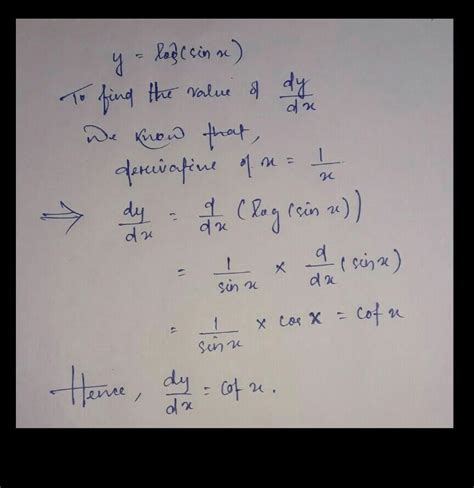 y = log(sin x)
To find the value of dy/dx
We know that,
derivative of x = 1/x
⇒ dy/dx = d/dx (log(sin x))
= 1/sin x × d/dx (sin x)
= 1/sin x × cos x = cot x
Hence, dy/dx = cot x.